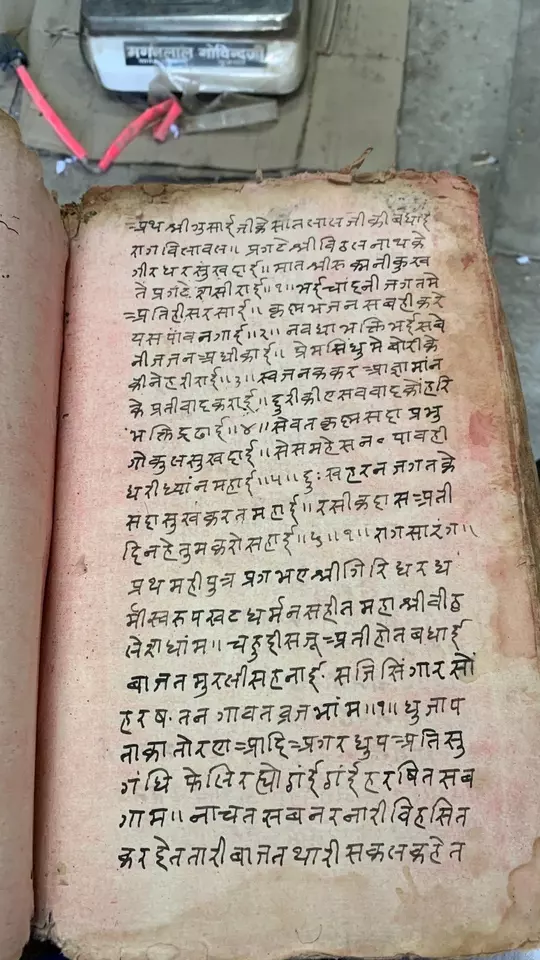 मगनलाल गोविन्दजी
अथ श्रीगुसाईजीके सातलालजीकी बधाई
राग बिलावल॥ प्रगटे श्रीविठलनाथके
गीरधर सुखदाई॥ मातश्रीरुक्मनीकुख
ते प्रगटे शसीराई॥१॥ भई चांदनी जगतमे
अतिहीसरसाई॥ कृष्णभजन सबहीकर
यसपांवनगाई॥२॥ नवधाभक्तिभईसबे
नीजजनअधीकाई॥ प्रेमसिंधुमे बोरीके
कीनेहरीराई॥३॥ स्वजनककरआज्ञामांन
के प्रतीवादकराई॥ दुरीकीएसबवादकोंहरि
भक्तिद्रढाई॥४॥ सेवतकृष्णसदाप्रभु
गोकुलसुखदाई॥ सेसमहेसन॰ पावही
धरीध्यांनमहाई॥५॥ दुःखहरनजगतके
सदासुखकरतमहाई॥ रसीकदासअती
दिनहेतुमकरोसहाई॥६॥१॥ रागसारंग॥
प्रथमहीपुत्रप्रगभएश्रीगिरिधरध
र्मीस्वरुपखटधर्मनसहीतमहाश्रीवीठ
लेशधांम॥ चहुदीसजूअतीहोतबधाई
बाजतमुरलीसहनाई॰ सजिसिंगारसों
हरष॰तनगावतव्रजभांम॥१॥ धुजाप
ताकातोरणआदिअगरधुपअतिसु
गंधिफेलिरह्योठांईठांईहरषितसब
गाम॥ नाचतसबनरनारीविहसित
करदेततारीबाजतथारीसकलकहेत